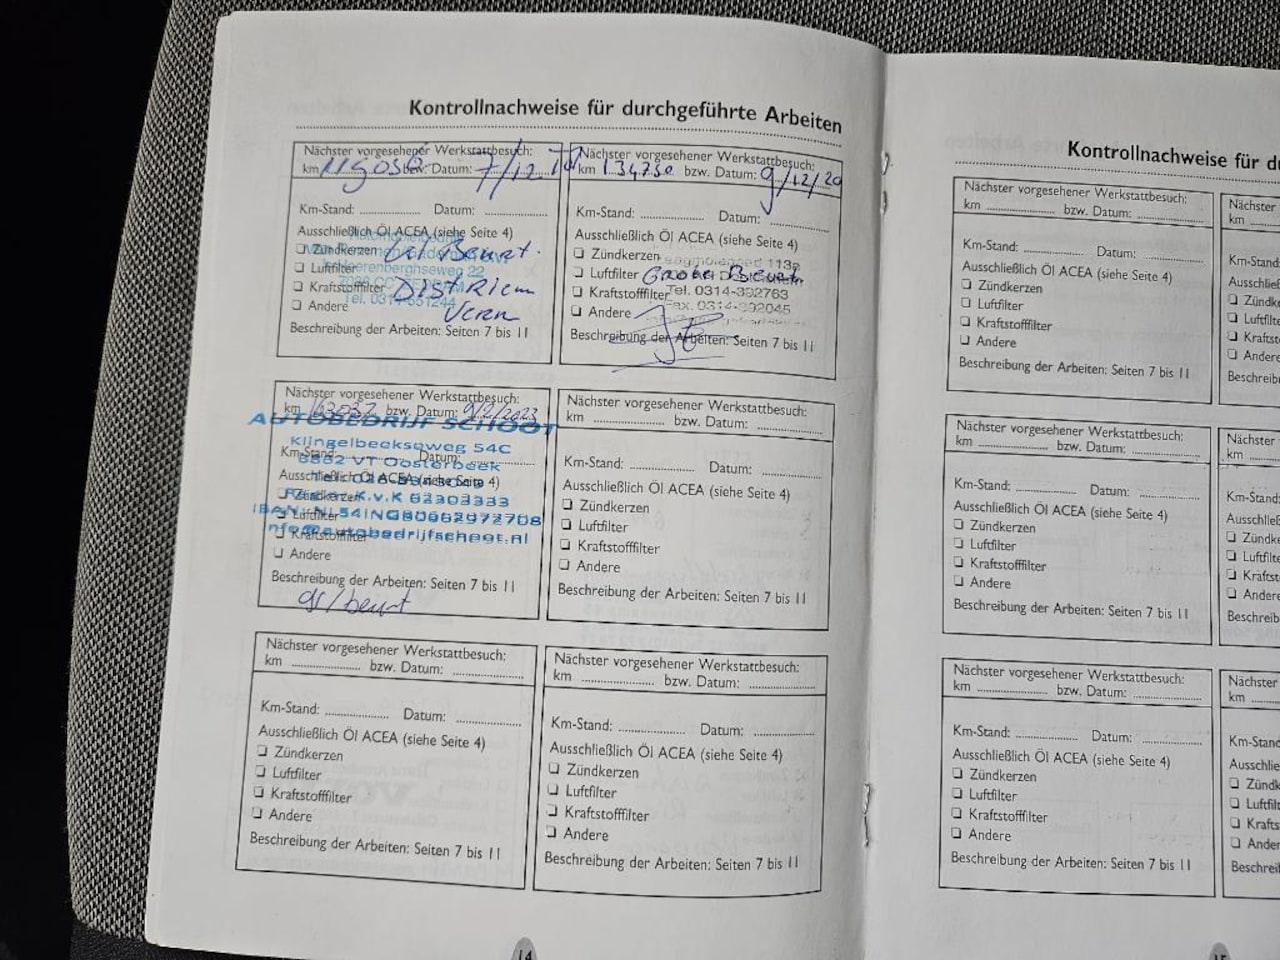 Kontrollnachweise für durchgeführte Arbeiten
Nächster vorgesehener Werkstattbesuch:
km 119058 bzw. Datum: 7/12
Km-Stand: Datum:
Ausschließlich Öl ACEA (siehe Seite 4)
Zündkerzen Beurt.
Luftfilter
Kraftstofffilter Distriem
Andere Vern
Tel. 0314-651244
Beschreibung der Arbeiten: Seiten 7 bis 11
Nächster vorgesehener Werkstattbesuch:
km 134730 bzw. Datum: 9/12/20
Km-Stand: Datum:
Ausschließlich Öl ACEA (siehe Seite 4)
Zündkerzen 113a
Luftfilter Grote Beurt
Kraftstofffilter Tel. 0314-392763
Andere Fax. 0314-392045
Beschreibung der Arbeiten: Seiten 7 bis 11
Nächster vorgesehener Werkstattbesuch:
km 163032 bzw. Datum: 9/2/2023
AUTOBEDRIJF SCHOOT
Klingelbeekseweg 54C
Km-Stand: Datum:
6862 VT Oosterbeek
Ausschließlich Öl ACEA (siehe Seite 4)
Zündkerzen K.v.K 62303333
Luftfilter
Kraftstofffilter info@autobedrijfschoot.nl
Andere
Beschreibung der Arbeiten: Seiten 7 bis 11
beurt
Nächster vorgesehener Werkstattbesuch:
km bzw. Datum:
Km-Stand: Datum:
Ausschließlich Öl ACEA (siehe Seite 4)
Zündkerzen
Luftfilter
Kraftstofffilter
Andere
Beschreibung der Arbeiten: Seiten 7 bis 11
Nächster vorgesehener Werkstattbesuch:
km bzw. Datum:
Km-Stand: Datum:
Ausschließlich Öl ACEA (siehe Seite 4)
Zündkerzen
Luftfilter
Kraftstofffilter
Andere
Beschreibung der Arbeiten: Seiten 7 bis 11
Nächster vorgesehener Werkstattbesuch:
km bzw. Datum:
Km-Stand: Datum:
Ausschließlich Öl ACEA (siehe Seite 4)
Zündkerzen
Luftfilter
Kraftstofffilter
Andere
Beschreibung der Arbeiten: Seiten 7 bis 11
14
Kontrollnachweise für d
Nächster vorgesehener Werkstattbesuch:
km bzw. Datum:
Km-Stand: Datum:
Ausschließlich Öl ACEA (siehe Seite 4)
Zündkerzen
Luftfilter
Kraftstofffilter
Andere
Beschreibung der Arbeiten: Seiten 7 bis 11
Nächster
km
Km-Stand:
Ausschließ
Zündk
Luftfilt
Kraftst
Andere
Beschreib
Nächster vorgesehener Werkstattbesuch:
km bzw. Datum:
Km-Stand: Datum:
Ausschließlich Öl ACEA (siehe Seite 4)
Zündkerzen
Luftfilter
Kraftstofffilter
Andere
Beschreibung der Arbeiten: Seiten 7 bis 11
Nächster
km
Km-Stand:
Ausschließ
Zündke
Luftfilt
Kraftst
Andere
Beschreib
Nächster vorgesehener Werkstattbesuch:
km bzw. Datum:
Km-Stand: Datum:
Ausschließlich Öl ACEA (siehe Seite 4)
Zündkerzen
Luftfilter
Kraftstofffilter
Andere
Beschreibung der Arbeiten: Seiten 7 bis 11
Nächster
km
Km-Stand
Ausschlie
Zündk
Luftfilt
Krafts
Ander
Beschreib
15